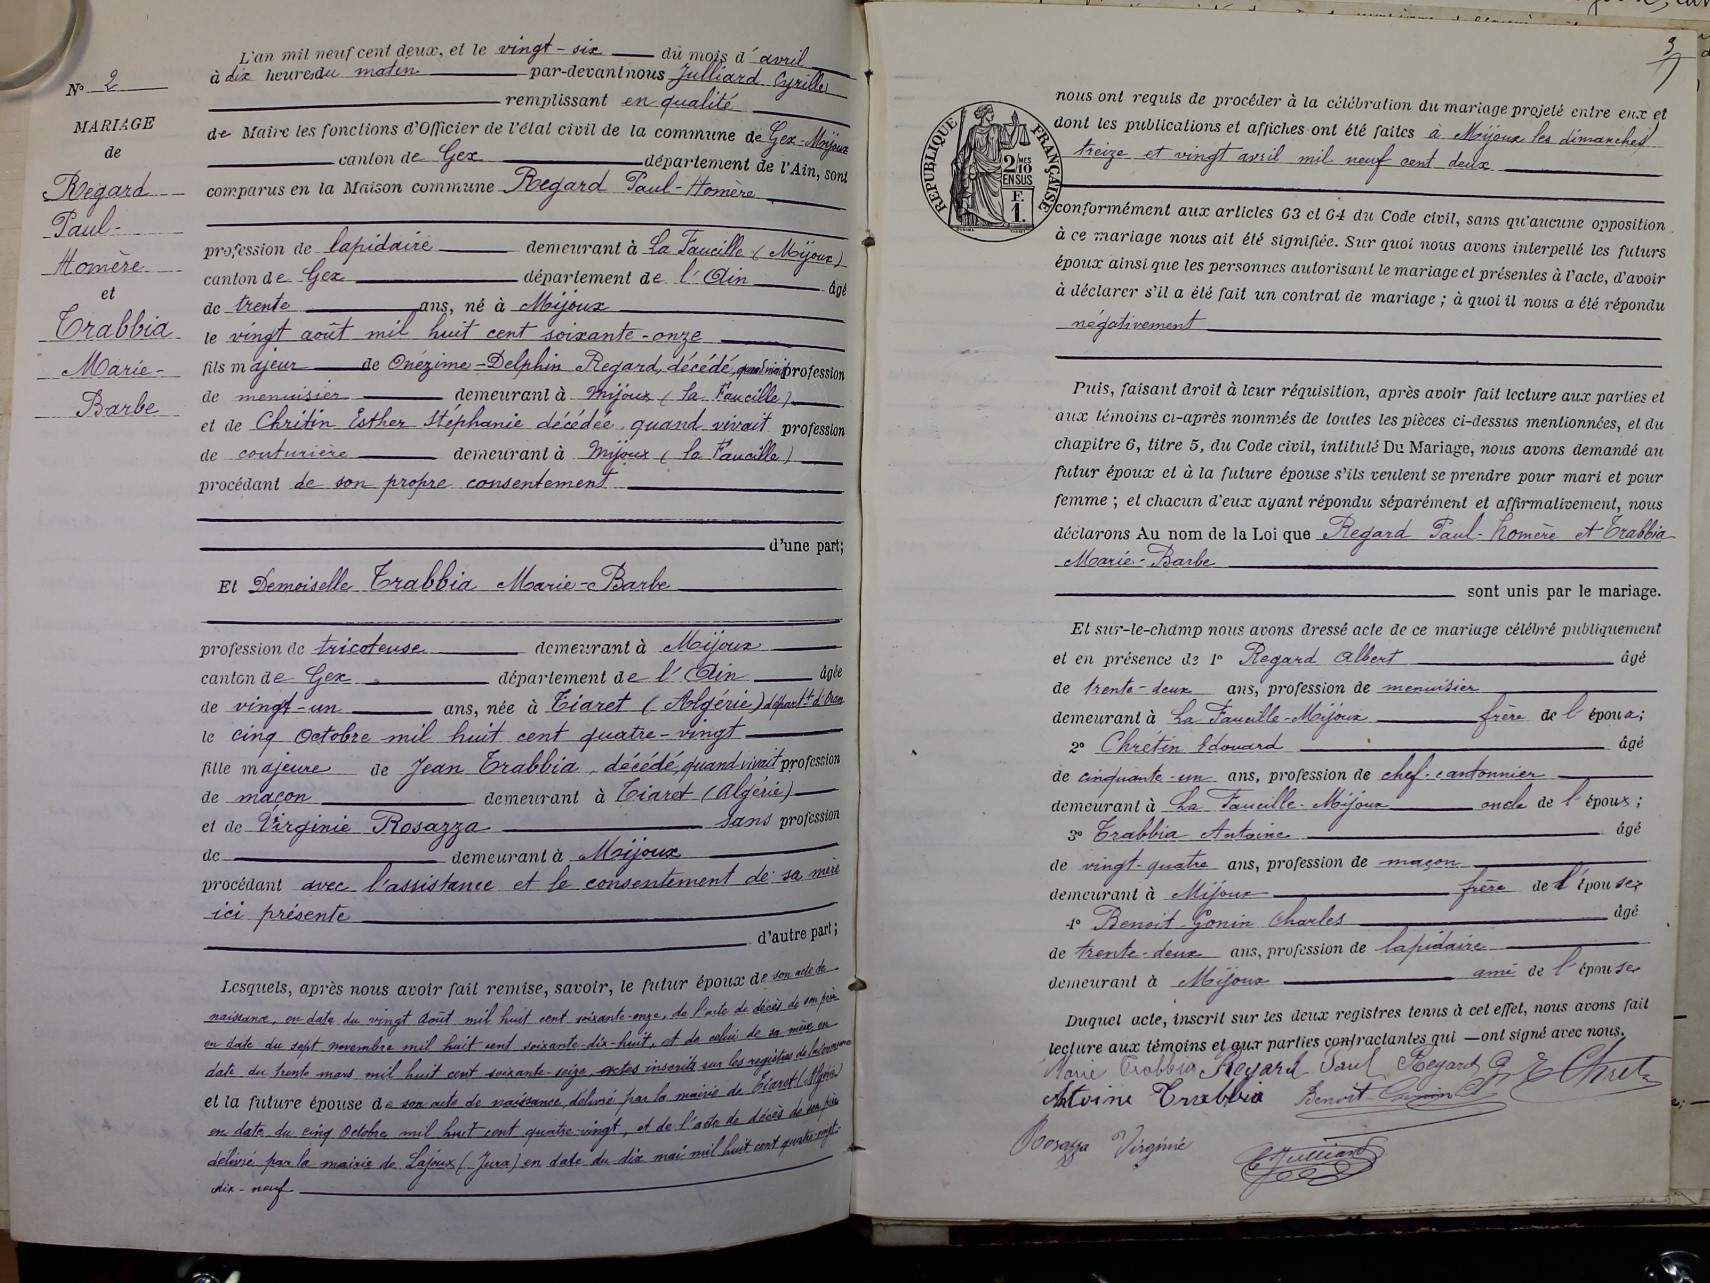 N° 2
MARIAGE
de
Regard
Paul-
Homère
et
Trabbia
Marie-
Barbe
L'an mil neuf cent deux, et le vingt-six du mois d'avril
à dix heures du matin par-devant nous Julliard Cyrille
remplissant en qualité
de Maire les fonctions d'Officier de l'état civil de la commune de Gex-Mijoux
canton de Gex département de l'Ain, sont
comparus en la Maison commune Regard Paul-Homère
profession de lapidaire demeurant à La Faucille (Mijoux)
canton de Gex département de l'Ain âgé
de trente ans, né à Mijoux
le vingt août mil huit cent soixante-onze
fils majeur de Onézime-Delphin Regard, décédé, quand vivait profession
de menuisier demeurant à Mijoux (la Faucille)
et de Chritin Esther Stéphanie décédée, quand vivait profession
de couturière demeurant à Mijoux (la Faucille)
procédant de son propre consentement
d'une part;
Et Demoiselle Trabbia Marie-Barbe
profession de tricoteuse demeurant à Mijoux
canton de Gex département de l'Ain âgée
de vingt-un ans, née à Tiaret (Algérie) départ-t d'Oran
le cinq Octobre mil huit cent quatre-vingt
fille majeure de Jean Trabbia, décédé, quand vivait profession
de maçon demeurant à Tiaret (Algérie)
et de Virginie Rosazza sans profession
de demeurant à Mijoux
procédant avec l'assistance et le consentement de sa mère
ici présente
d'autre part;
Lesquels, après nous avoir fait remise, savoir, le futur époux de son acte de
naissance, en date du vingt Août mil huit cent soixante-onze, de l'acte de décès de son père
en date du sept novembre mil huit cent soixante-dix-huit, et de celui de sa mère, en
date du trente mars mil huit cent soixante-seize, actes inscrits sur les registres de la commune
et la future épouse de son acte de naissance, délivré par la mairie de Tiaret (Algérie)
en date du cinq Octobre mil huit cent quatre-vingt, et de l'acte de décès de son père
délivré par la mairie de Lajoux (Jura) en date du dix mai mil huit cent quatre-vingt-
dix-neuf
3
RÉPUBLIQUE FRANÇAISE
2/10 MES
EN SUS
F.
1.
nous ont requis de procéder à la célébration du mariage projeté entre eux et
dont les publications et affiches ont été faites à Mijoux les dimanches
treize et vingt avril mil neuf cent deux
conformément aux articles 63 et 64 du Code civil, sans qu'aucune opposition
à ce mariage nous ait été signifiée. Sur quoi nous avons interpellé les futurs
époux ainsi que les personnes autorisant le mariage et présentes à l'acte, d'avoir
à déclarer s'il a été fait un contrat de mariage; à quoi il nous a été répondu
négativement
Puis, faisant droit à leur réquisition, après avoir fait lecture aux parties et
aux témoins ci-après nommés de toutes les pièces ci-dessus mentionnées, et du
chapitre 6, titre 5, du Code civil, intitulé Du Mariage, nous avons demandé au
futur époux et à la future épouse s'ils veulent se prendre pour mari et pour
femme; et chacun d'eux ayant répondu séparément et affirmativement, nous
déclarons Au nom de la Loi que Regard Paul-homère et Trabbia
Marie-Barbe
sont unis par le mariage.
Et sur-le-champ nous avons dressé acte de ce mariage célébré publiquement
et en présence de 1° Regard Albert âgé
de trente-deux ans, profession de menuisier
demeurant à La Faucille-Mijoux frère de l'époux;
2° Chrétin Edouard âgé
de cinquante-un ans, profession de chef-cantonnier
demeurant à La Faucille-Mijoux oncle de l'époux;
3° Trabbia Antoine âgé
de vingt-quatre ans, profession de maçon
demeurant à Mijoux frère de l'épouse;
4° Benoit-Gonin Charles âgé
de trente-deux ans, profession de lapidaire
demeurant à Mijoux ami de l'épouse
Duquel acte, inscrit sur les deux registres tenus à cet effet, nous avons fait
lecture aux témoins et aux parties contractantes qui ont signé avec nous.
Marie Trabbia Regard Paul Regard A
Antoine Trabbia Benoit Gonin Ch
Rosazza Virginie
C Julliard